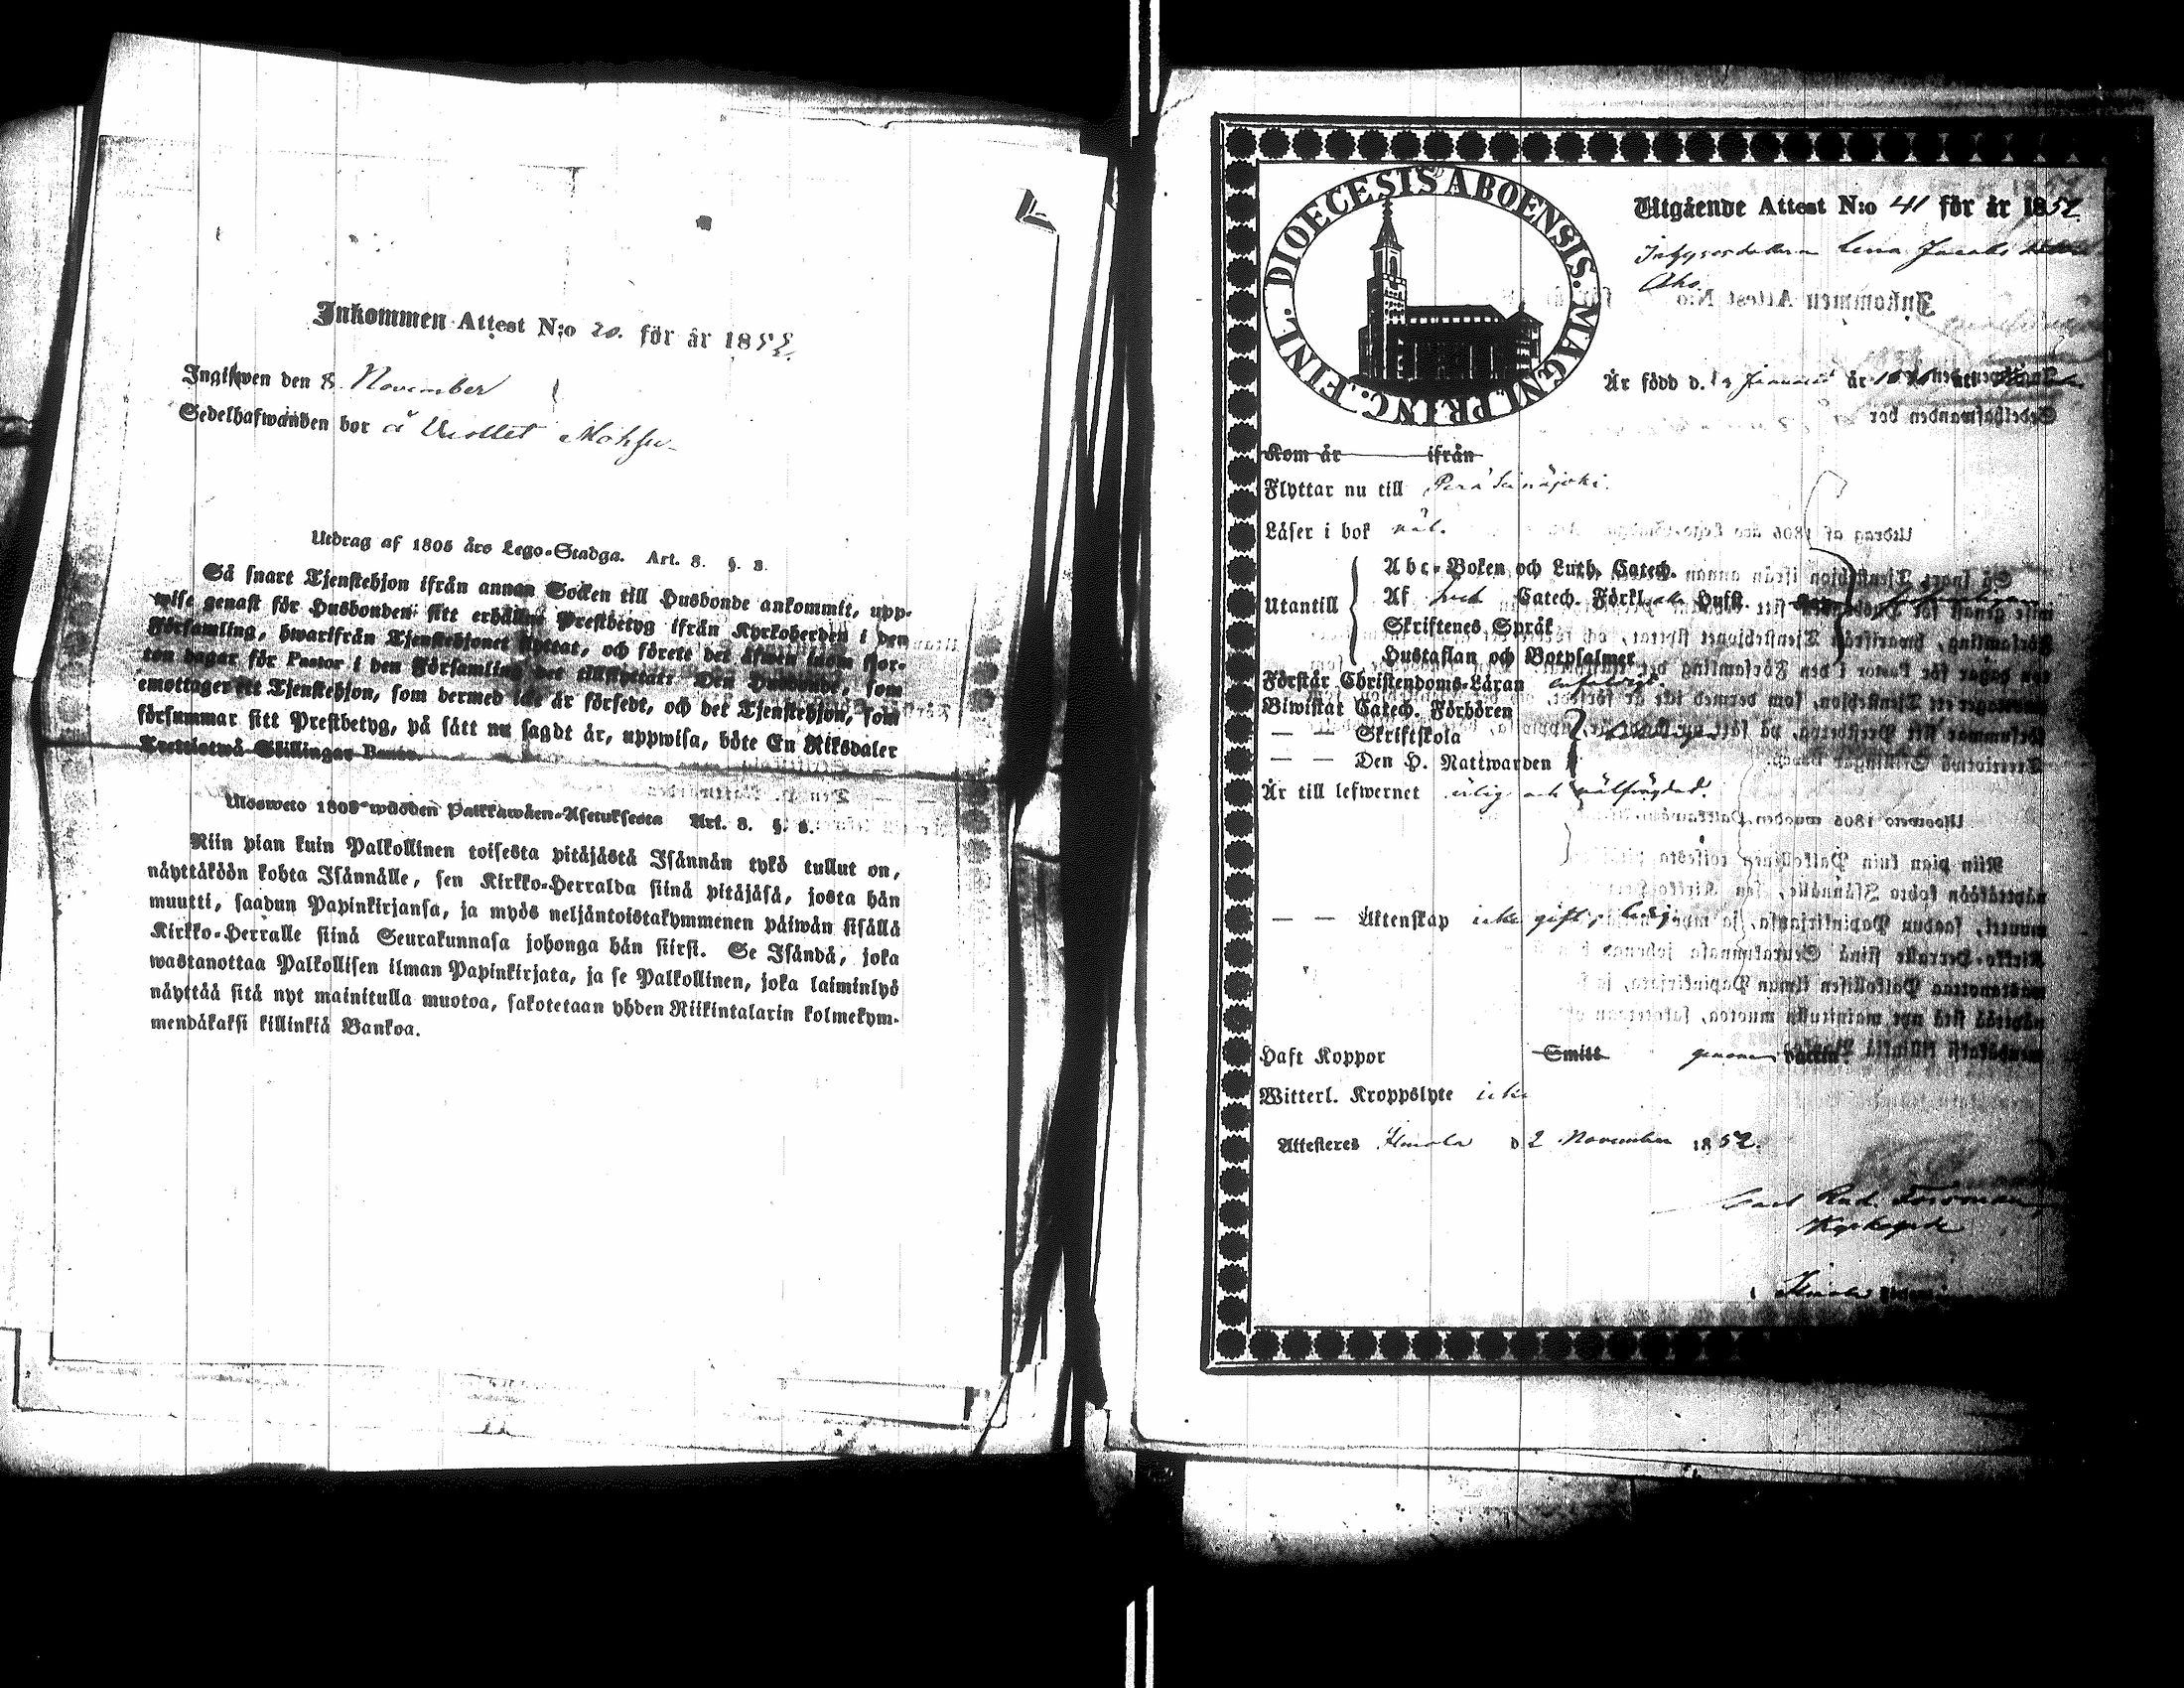 Inkommen Attest N:o 20. för år 1852.
Ingifwen den 8. November
Sedelhafwanden bor å
Utdrag af 1805 års Lego-Stadga. Art. 8. §. 8.
Så snart Tjenstehjon ifrån annan Socken till Husbonde ankommit, upp-
wise genast för Husbonden sitt erhållne Prestbetyg ifrån Kyrkoherden i den
Församling, hwarifrån Tjenstehjonet flyttat, och förete det äfwen inom fjor-
ton dagar för Pastor i den Församling det tillflyttat. Den Husbonde, som
emottager ett Tjenstehjon, som dermed icke är försedt, och det Tjenstehjon, som
försummar sitt Prestbetyg, på sätt nu sagdt är, uppwisa, böte En Riksdaler
Trettiotwå Skillingar Banco.
Ulosweto 1805 wuoden Palkkawäen-Asetuksesta Art. 8. §. 8.
Niin pian kuin Palkollinen toisesta pitäjästä Isännän tykö tullut on,
näyttäköön kohta Isännälle, sen Kirkko-Herralda siinä pitäjäsä, josta hän
muutti, saadun Papinkirjansa, ja myös neljäntoistakymmenen päiwän sisällä
Kirkko-Herralle siinä Seurakunnasa johonga hän siirsi. Se Isändä, joka
wastanottaa Palkollisen ilman Papinkirjata, ja se Palkollinen, joka laiminlyö
näyttää sitä nyt mainitulla muotoa, sakotetaan yhden Riikintalarin kolmekym-
mendäkaksi killinkiä Bankoa.
DIOECESIS ABOENSIS. MAGNI. PRINC. FINL.
Utgående Attest N:o 41 för år 1852
Lena Jacobs
Aho
Är född d. Januari år
Kom år ifrån
Flyttar nu till Perä Seinäjoki.
Läser i bok väl.
Abc-Boken och Luth. Catech.
Utantill Af Catech. Förkl. Husst.
Skriftenes Språk
Hustaflan och Botpsalmer
Förstår Christendoms-Läran
Biwistat Catech. Förhören
— Skriftskola
— — Den H. Nattwarden
Är till lefwernet ärlig och välfrägdad.
— — Äktenskap icke gift, ledig
Haft Koppor Smitt genom Vaccin.
Witterl. Kroppslyte icke
Attesteres Ilmola d. 2 November 1852.
Carl Rud. Forsman
i Ilmola